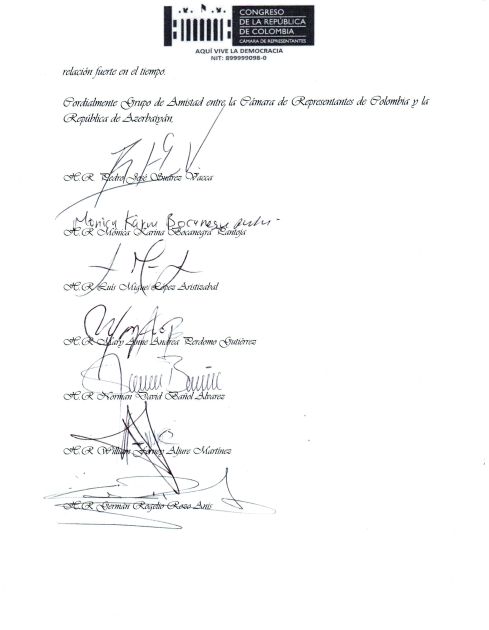 CONGRESO
DE LA REPÚBLICA
DE COLOMBIA
CÁMARA DE REPRESENTANTES
AQUÍ VIVE LA DEMOCRACIA
NIT: 899999098-0
relación fuerte en el tiempo.
Cordialmente Grupo de Amistad entre la Cámara de Representantes de Colombia y la
República de Azerbaiyán,
H.R. Pedro José Suárez Vacca
Monica Karina Bocanegra
H.R. Mónica Karina Bocanegra Pantoja
H.R. Luis Miguel López Aristizabal
H.R. Mary Anne Andrea Perdomo Gutiérrez
H.R. Norman David Bañol Álvarez
H.R. William Ferney Aljure Martínez
H.R. Germán Rogelio Rozo Anís